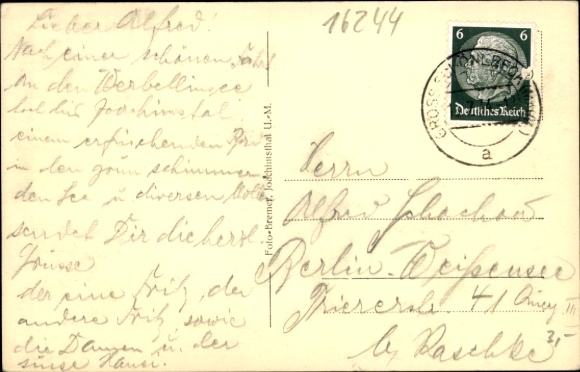 Lieber Alfred!
Nach einer schönen Fahrt
an den Werbellinsee
bis Joachimstal
einem erfrischenden Bad
in den grün schimmern
den See u. diversen
sendet Dir die herzl.
Grüsse
der eine Fritz, der
andere Fritz sowie
die Damen u. der
süsse Hansi.
16244
Foto-Bremer, Joachimsthal U.-M.
6 6
Deutsches Reich
GROSS SCHÖNEBECK
a
Herrn
Alfred Schachow
Berlin-Weißensee
Triererstr. 41
III
b/ Raschke
3,-